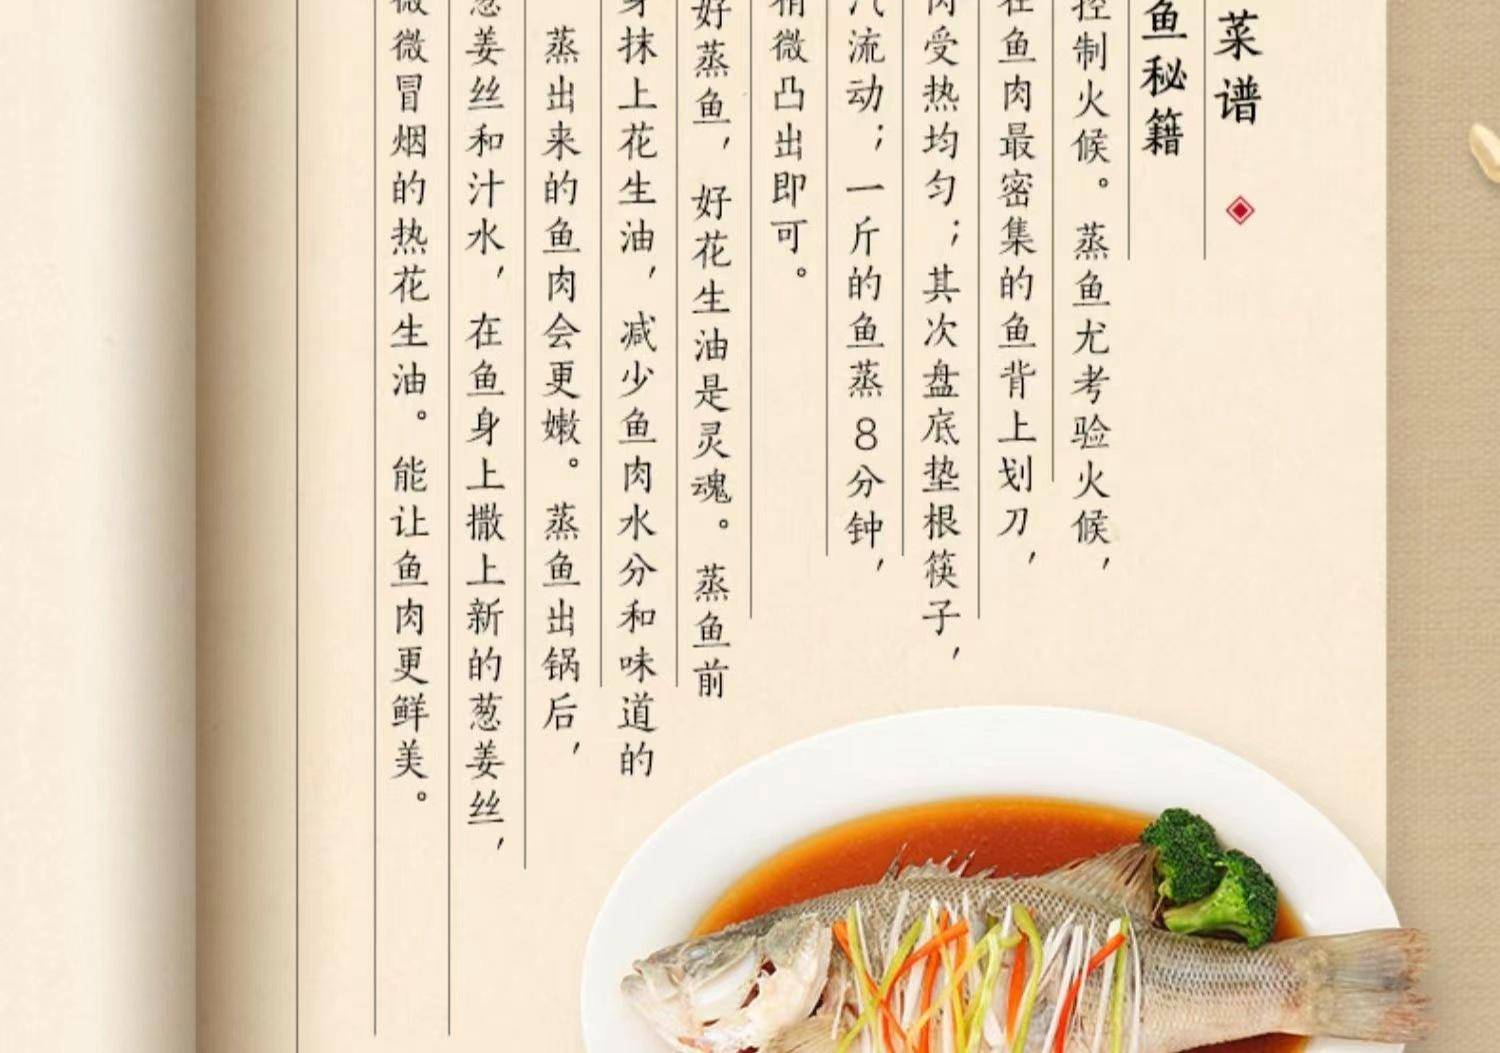 菜谱
鱼秘籍
控制火候。蒸鱼尤考验火候，
在鱼肉最密集的鱼背上划刀，
肉受热均匀；其次盘底垫根筷子，
汽流动；一斤的鱼蒸8分钟，
稍微凸出即可。
好蒸鱼，好花生油是灵魂。蒸鱼前
身抹上花生油，减少鱼肉水分和味道的
蒸出来的鱼肉会更嫩。蒸鱼出锅后，
葱姜丝和汁水，在鱼身上撒上新的葱姜丝，
微微冒烟的热花生油。能让鱼肉更鲜美。